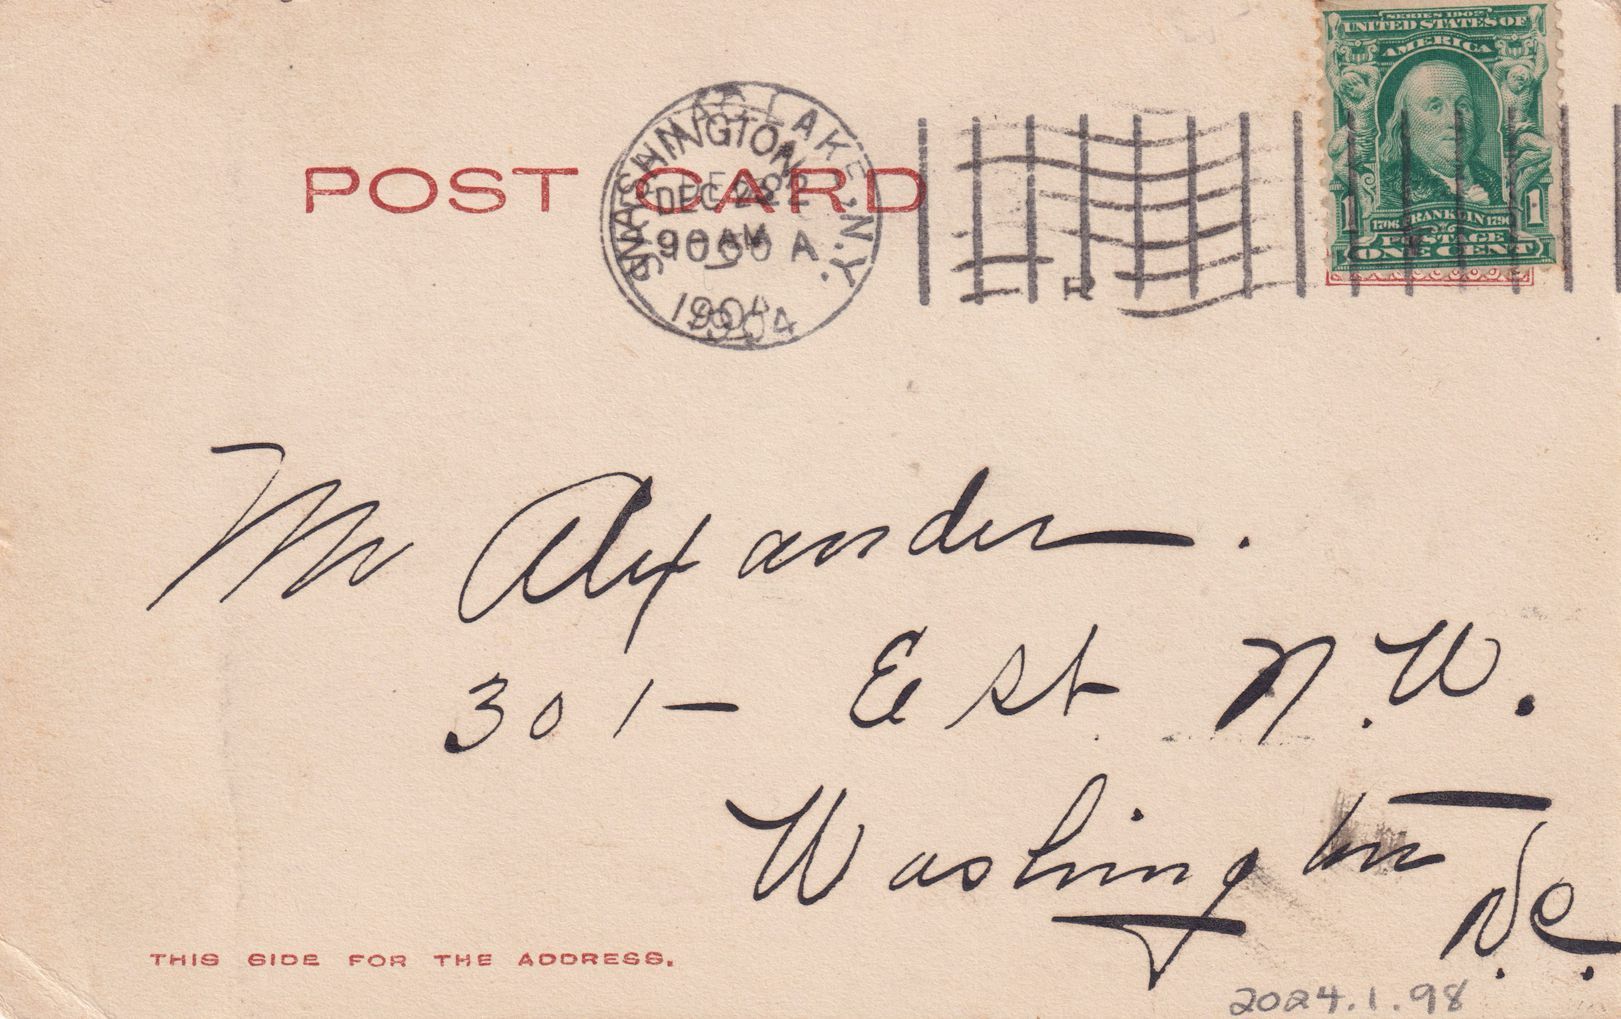 SERIES 1902
UNITED STATES OF
AMERICA
1706 FRANKLIN 1790
POSTAGE
1 ONE CENT 1
LAKE N.Y.
WASHINGTON
DEC 22
1904
1904
R
POST CARD
Mr Alexander.
301 - E St. N.W.
Washington
D.C.
THIS SIDE FOR THE ADDRESS.
2024.1.98